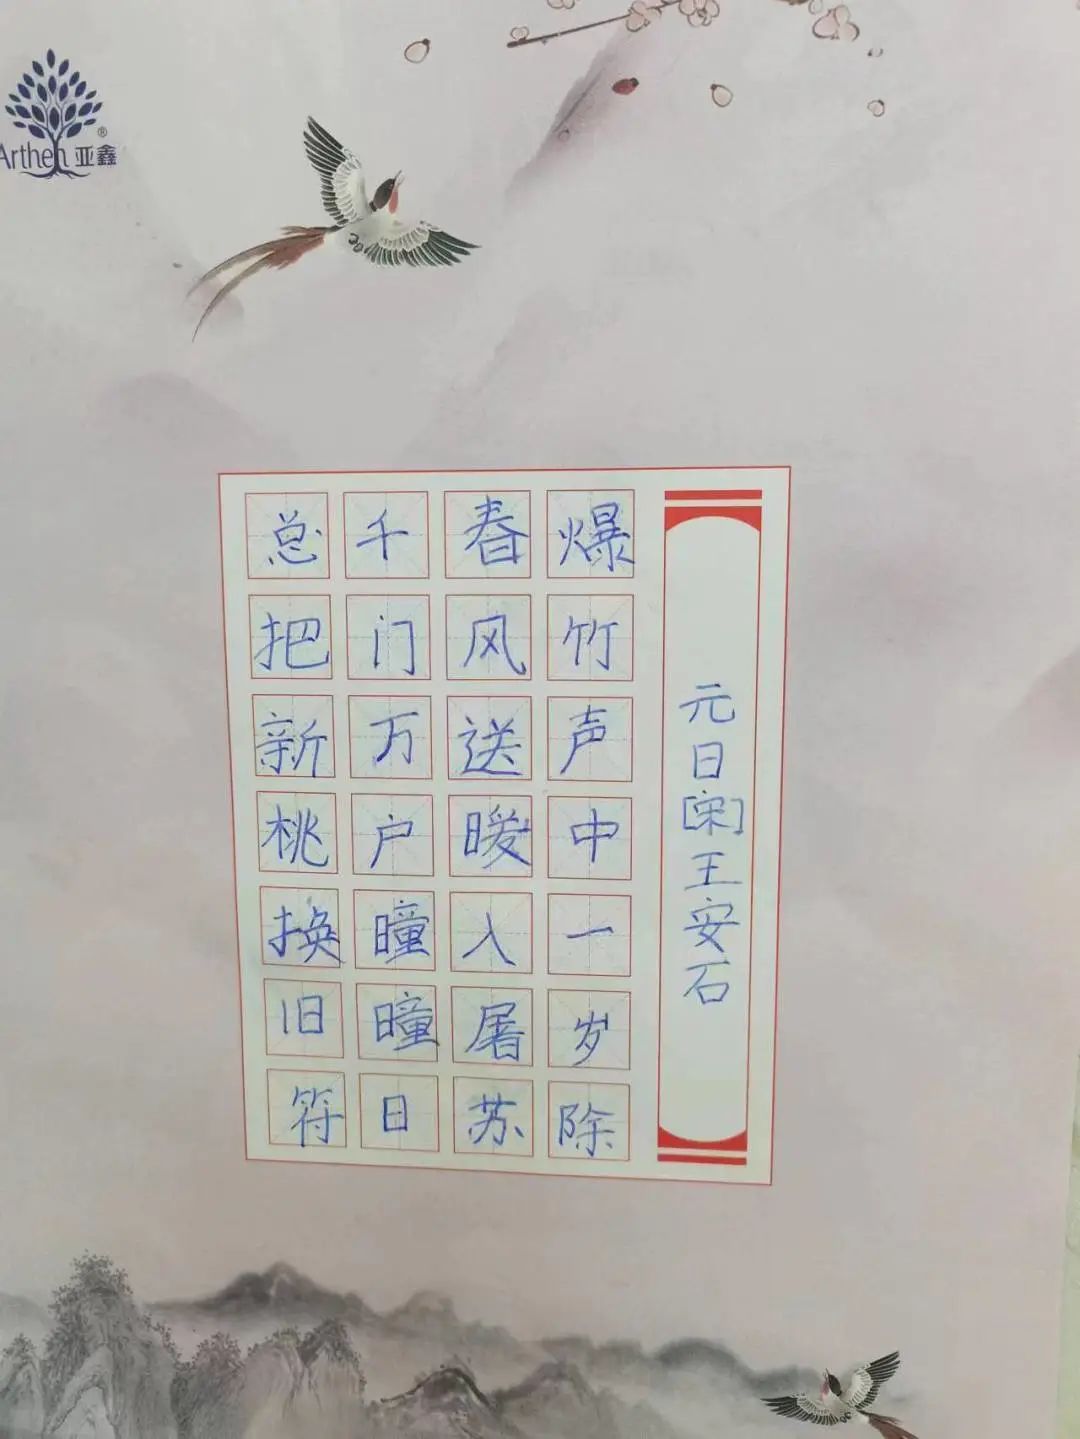 Arthen 亚鑫®
元日[宋]王安石
爆竹声中一岁除
春风送暖入屠苏
千门万户曈曈日
总把新桃换旧符